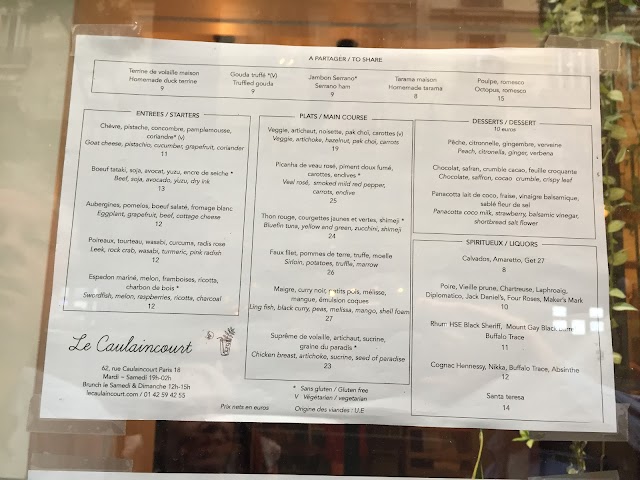 A PARTAGER / TO SHARE
Terrine de volaille maison
Homemade duck terrine
9
Gouda truffé *(V)
Truffled gouda
9
Jambon Serrano*
Serrano ham
9
Tarama maison
Homemade tarama
8
Poulpe, romesco
Octopus, romesco
15
ENTREES / STARTERS
Chèvre, pistache, concombre, pamplemousse,
coriandre* (v)
Goat cheese, pistachio, cucumber, grapefruit, coriander
11
Boeuf tataki, soja, avocat, yuzu, encre de seiche *
Beef, soja, avocado, yuzu, dry ink
13
Aubergines, pomelos, boeuf salaté, fromage blanc
Eggplant, grapefruit, beef, cottage cheese
12
Poireaux, tourteau, wasabi, curcuma, radis rose
Leek, rock crab, wasabi, turmeric, pink radish
12
Espadon mariné, melon, framboises, ricotta,
charbon de bois *
Swordfish, melon, raspberries, ricotta, charcoal
12
Le Caulaincourt
62, rue Caulaincourt Paris 18
Mardi – Samedi 19h-02h
Brunch le Samedi & Dimanche 12h-15h
lecaulaincourt.com / 01 42 59 42 55
PLATS / MAIN COURSE
Veggie, artichaut, noisette, pak choi, carottes (v)
Veggie, artichoke, hazelnut, pak choi, carrots
19
Picanha de veau rosé, piment doux fumé,
carottes, endives *
Veal rosé, smoked mild red pepper,
carrots, endive
25
Thon rouge, courgettes jaunes et vertes, shimeji *
Bluefin tuna, yellow end green, zucchini, shimeji
24
Faux filet, pommes de terre, truffe, moelle
Sirloin, potatoes, truffle, marrow
26
Maigre, curry noir, petits puis, mélisse,
mangue, émulsion coques
Ling fish, black curry, peas, melissa, mango, shell foam
27
Suprême de volaille, artichaut, sucrine,
graine du paradis *
Chicken breast, artichoke, sucrine, seed of paradise
23
* Sans gluten / Gluten free
V Végétarien / vegetarian
Prix nets en euros
Origine des viandes : U.E
DESSERTS / DESSERT
10 euros
Pêche, citronnelle, gingembre, verveine
Peach, citronella, ginger, verbena
Chocolat, safran, crumble cacao, feuille croquante
Chocolate, saffran, cocoa crumble, crispy leaf
Panacotta lait de coco, fraise, vinaigre balsamique,
sablé fleur de sel
Panacotta coco milk, strawberry, balsamic vinegar,
shortbread salt flower
SPIRITUEUX / LIQUORS
Calvados, Amaretto, Get 27
8
Poire, Vieille prune, Chartreuse, Laphroaig,
Diplomatico, Jack Deniel's, Four Roses, Maker's Mark
10
Rhum HSE Black Sheriff, Mount Gay Black
Buffalo Trace
11
Cognac Hennessy, Nikka, Buffalo Trace, Absinthe
12
Santa teresa
14